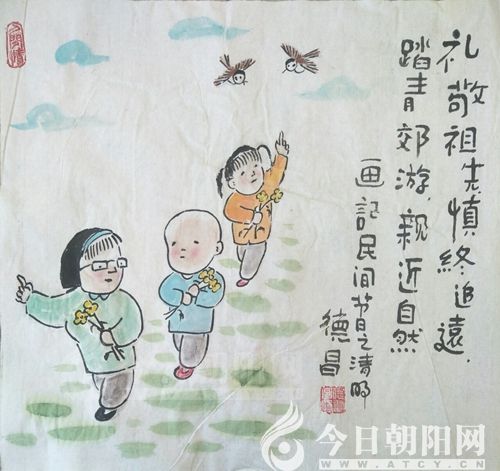 礼敬祖先,慎终追远,
踏青郊游,親近自然
画記民间节日之清明
德昌
今日朝阳网
WWW.ATCY.CN